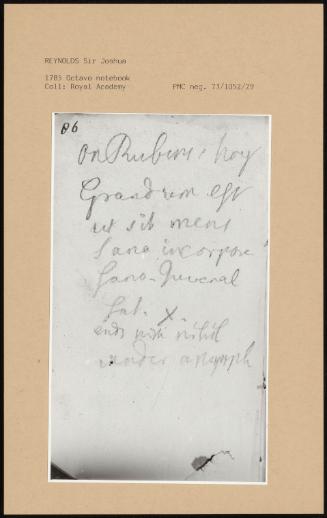 REYNOLDS Sir Joshua
1785 Octavo notebook
Coll: Royal Academy PMC neg. 73/1052/29
86
on Rubens
est
ut sit mens
Sana in corpore
Sano. Juvenal
Sat. X.
ends with nihil
under